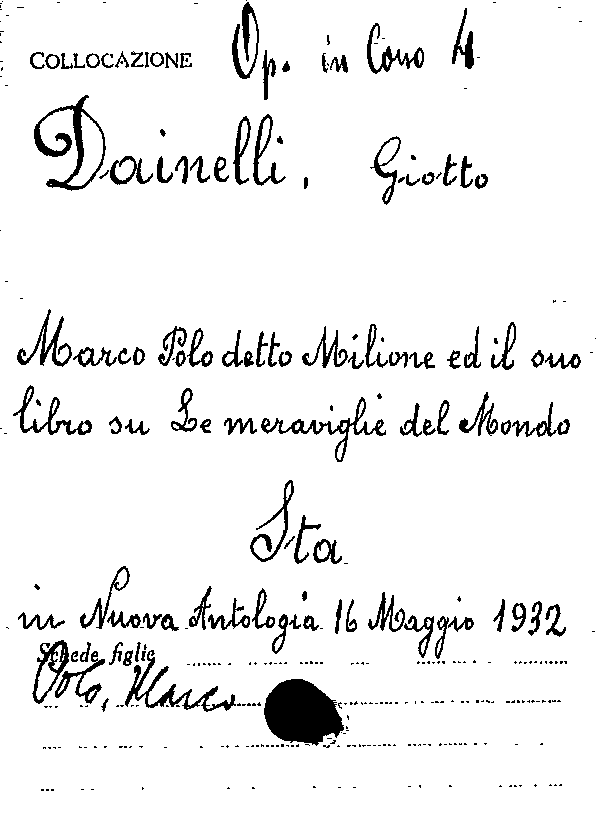 COLLOCAZIONE Op. in Corso 4
Dainelli, Giotto
Marco Polo detto Milione ed il suo
libro su Le meraviglie del Mondo
Sta
in Nuova Antologia 16 Maggio 1932
Schede figlie
Polo, Marco